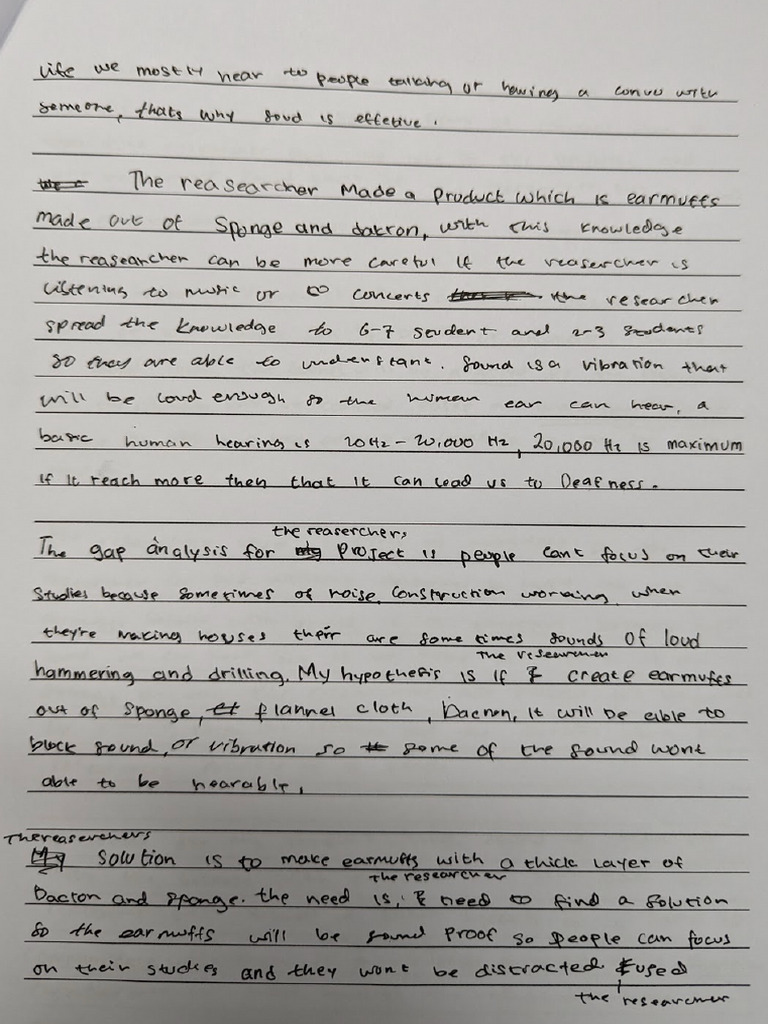 life we mostly hear to people talking or having a convo with
someone, thats why soud is effetive.
The reasearcher Made a product which is earmuffs
made out of Sponge and dakron, with this knowledge
the reasearcher can be more careful if the reasercher is
listening to music or to concerts the researcher
spread the knowledge to 6-7 student and 2-3 students
so they are able to understant. Sound is a vibration that
will be loud enough so the human ear can hear, a
basic human hearing is 20Hz - 20,000 Hz, 20,000 Hz is maximum
if it reach more then that it can lead us to Deafness.
the reaserchers
The gap analysis for project is people cant focus on their
studies because sometimes of noise construction working, when
they're making houses their are some times sounds of loud
the researcher
hammering and drilling. My hypothesis is if I create earmuffs
out of sponge, flannel cloth, Dacron, it will be able to
block sound, or vibration so some of the sound wont
able to be hearable.
The reaserchers
solution is to make earmuffs with a thick layer of
the researcher
Dacron and sponge. the need is, I need to find a solution
so the earmuffs will be sound proof so people can focus
on their studies and they wont be distracted I used
the researcher